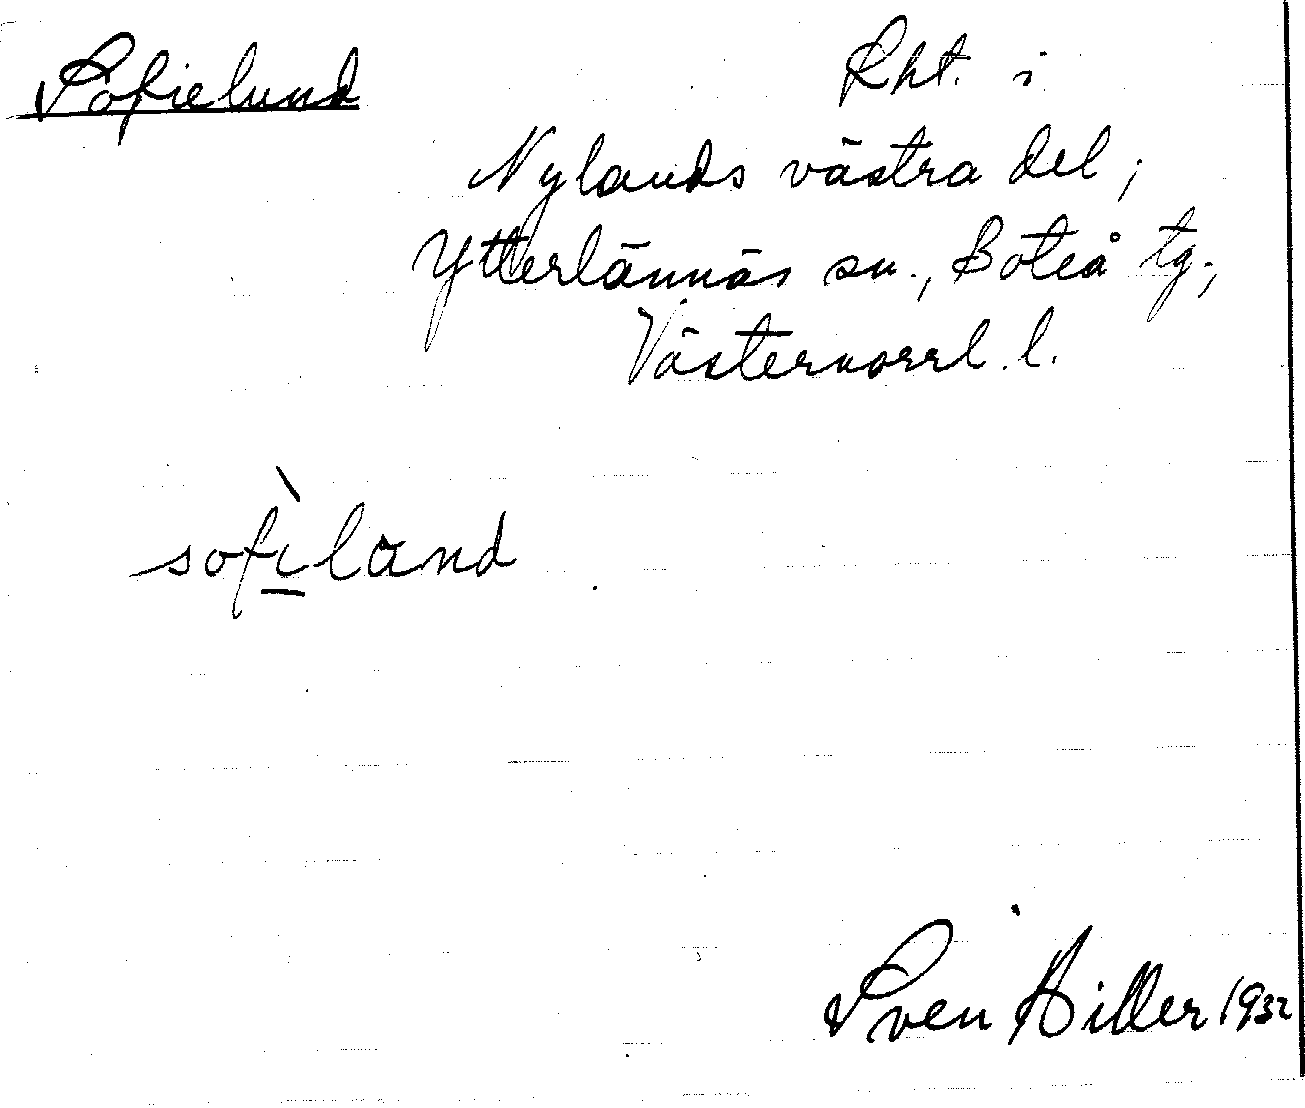 Sofielund
Lht. i
Nylands västra del;
Ytterlännäs sn., Boteå tg.,
Västernorrl. l.
sofì̲land
Sven Hiller 1932